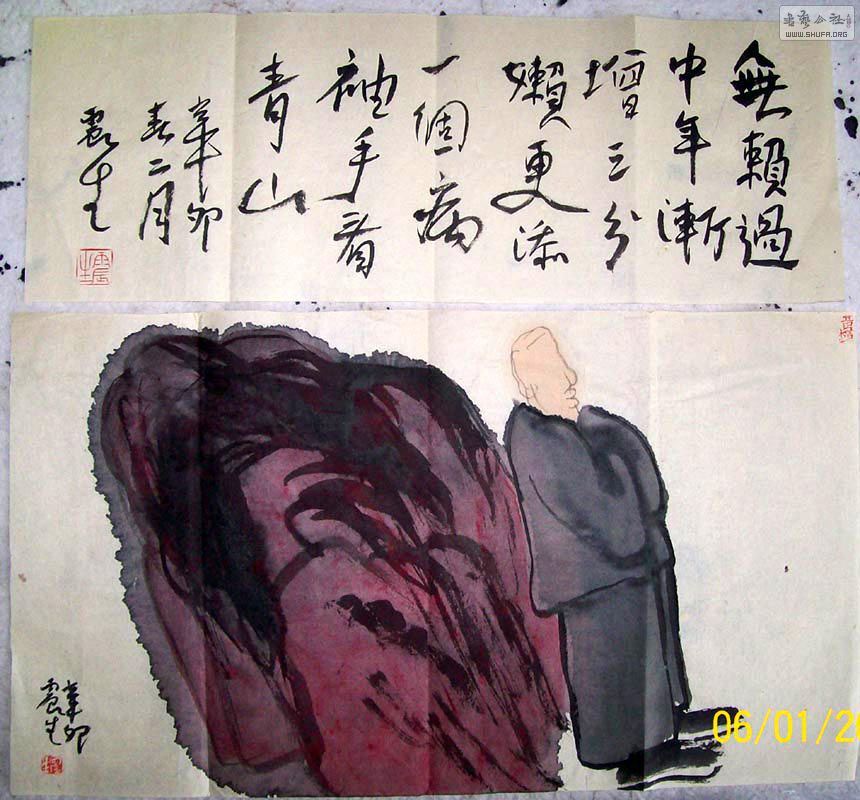 WWW.SHUFA.ORG
無賴過
中年漸
增三分
懶更添
一個病
袖手看
青山
辛卯
春二月
震生
辛卯
震生
06/01/20